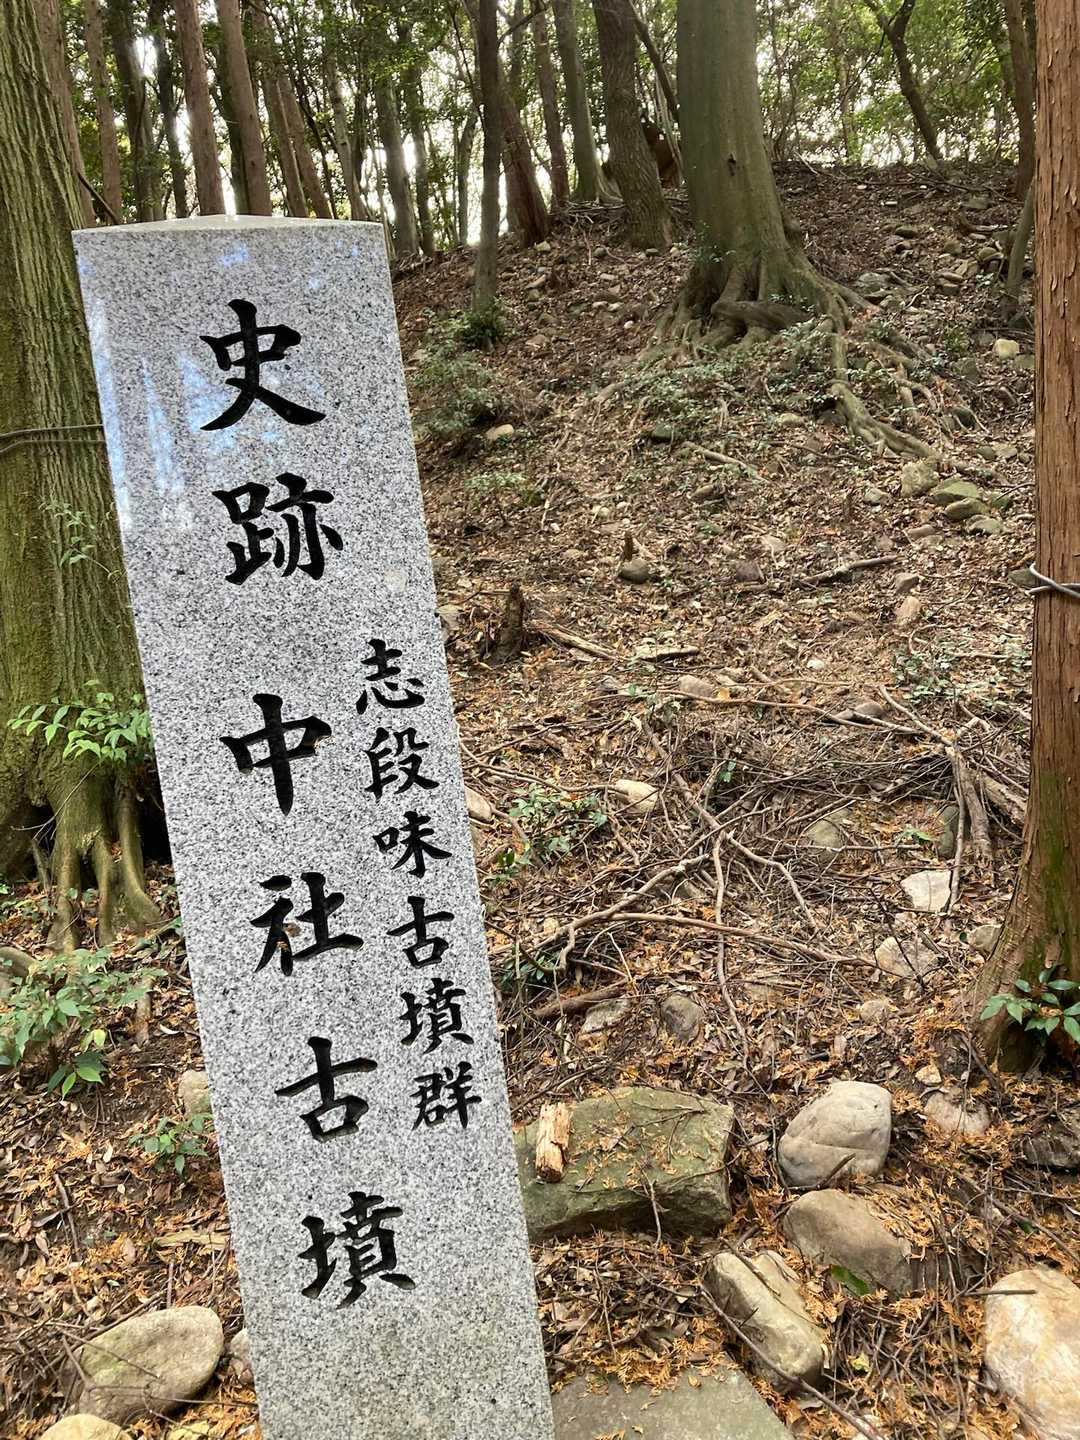 史跡 中社古墳
志段味古墳群